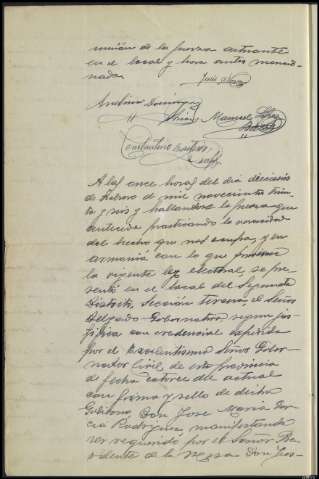 reunión de la fuerza actuante
en el local y hora antes mencio-
nada
Manuel López
A las once horas del día dieciseis
de Febrero de mil novecientos trein-
ta y seis y hallandose la fuerza que
antecede practicando la veracidad
del hecho que nos ocupa, y en
armonía con lo que
la vigente ley electoral, se pre-
sentó en el local del Segundo
Distrito, Sección tercera, el Señor
Delegado Gubernativo, segun jus-
tifica con credencial expedida
por el Excelentisimo Señor Gober-
nador Civil de esta provincia
de fecha catorce del actual
con firma y sello de dicho
Gobierno, Don Jose Maria Gar-
cia Rodriguez, manifestando
ser requerido por el Señor Pre-
sidente de la Mesa Don